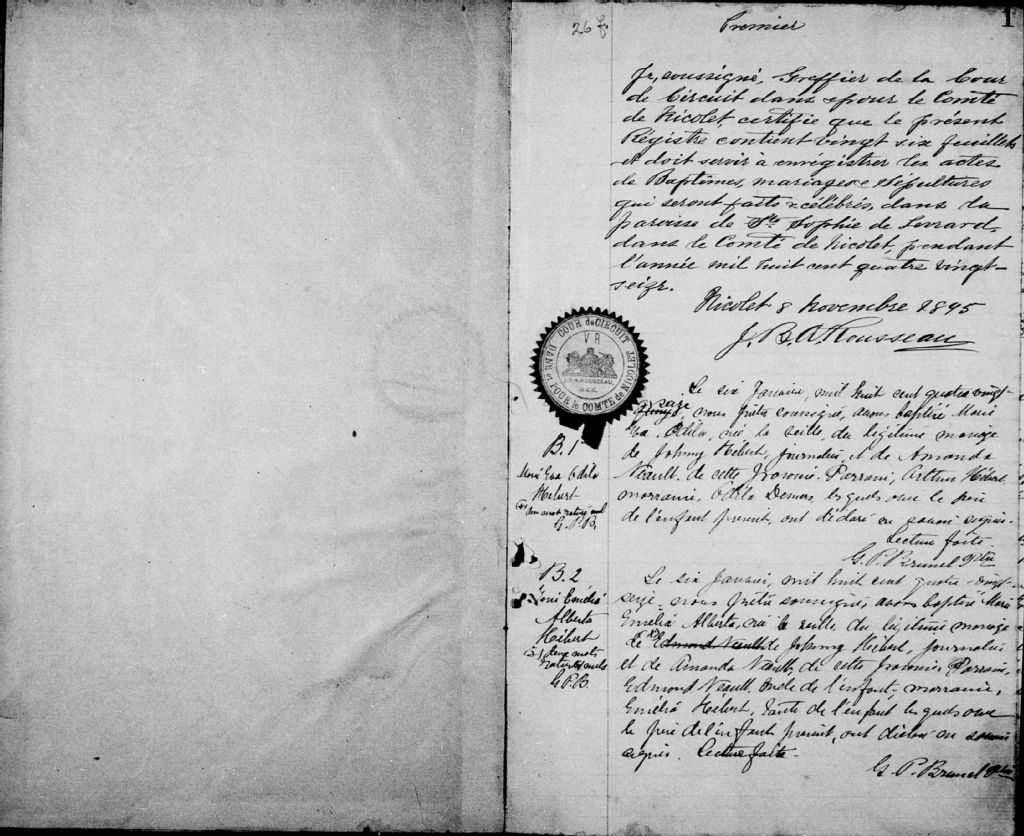 26 f.
Premier
1
Je, soussigné, Greffier de la Cour
de Circuit dans & pour le Comté
de Nicolet certifie que le présent
Régistre contient vingt six feuillets
et doit servir à enregistrer les actes
de Baptêmes, mariages & Sépultures
qui seront faits & célébrés, dans la
paroisse de Ste Sophie de Levrard,
dans le Comté de Nicolet, pendant
l'année mil huit cent quatre vingt-
seize.
Nicolet 8 Novembre 1895
J. B. A. Rousseau
COUR de CIRCUIT
DANS et POUR le COMTE de NICOLET
V R
J.B.A. ROUSSEAU,
G.C.C.
B. 1
Marie Eva Odila
Hébert
un mot rayé nul
G. P. B.
Le six Janvier, mil huit cent quatre vingt
seize, nous prêtre soussigné, avons baptisé Marie
Eva Odila, née la veille, du légitime mariage
de Johnny Hébert, journalier, et de Amanda
Neault, de cette paroisse. Parrain, Arthur Hébert
marraine, Odila Demers, lesquels avec le père
de l'enfant présent, ont déclaré ne savoir signer.
Lecture faite.
G. P. Brunel Ptre
B. 2
Marie Emélie
Alberta
Hébert
deux mots
nuls
G. P. B.
Le six Janvier, mil huit cent quatre-vingt-
seize, nous prêtre soussigné, avons baptisé Marie
Emélie Alberta, née la veille du légitime mariage
de Edmond Neault de Johnny Hébert, journalier
et de Amanda Neault, de cette paroisse, Parrain,
Edmond Neault, oncle de l'enfant, marraine,
Emélie Hébert, tante de l'enfant lesquels avec
le père de l'enfant présent, ont déclaré ne savoir
signer. Lecture faite.
G. P. Brunel Ptre